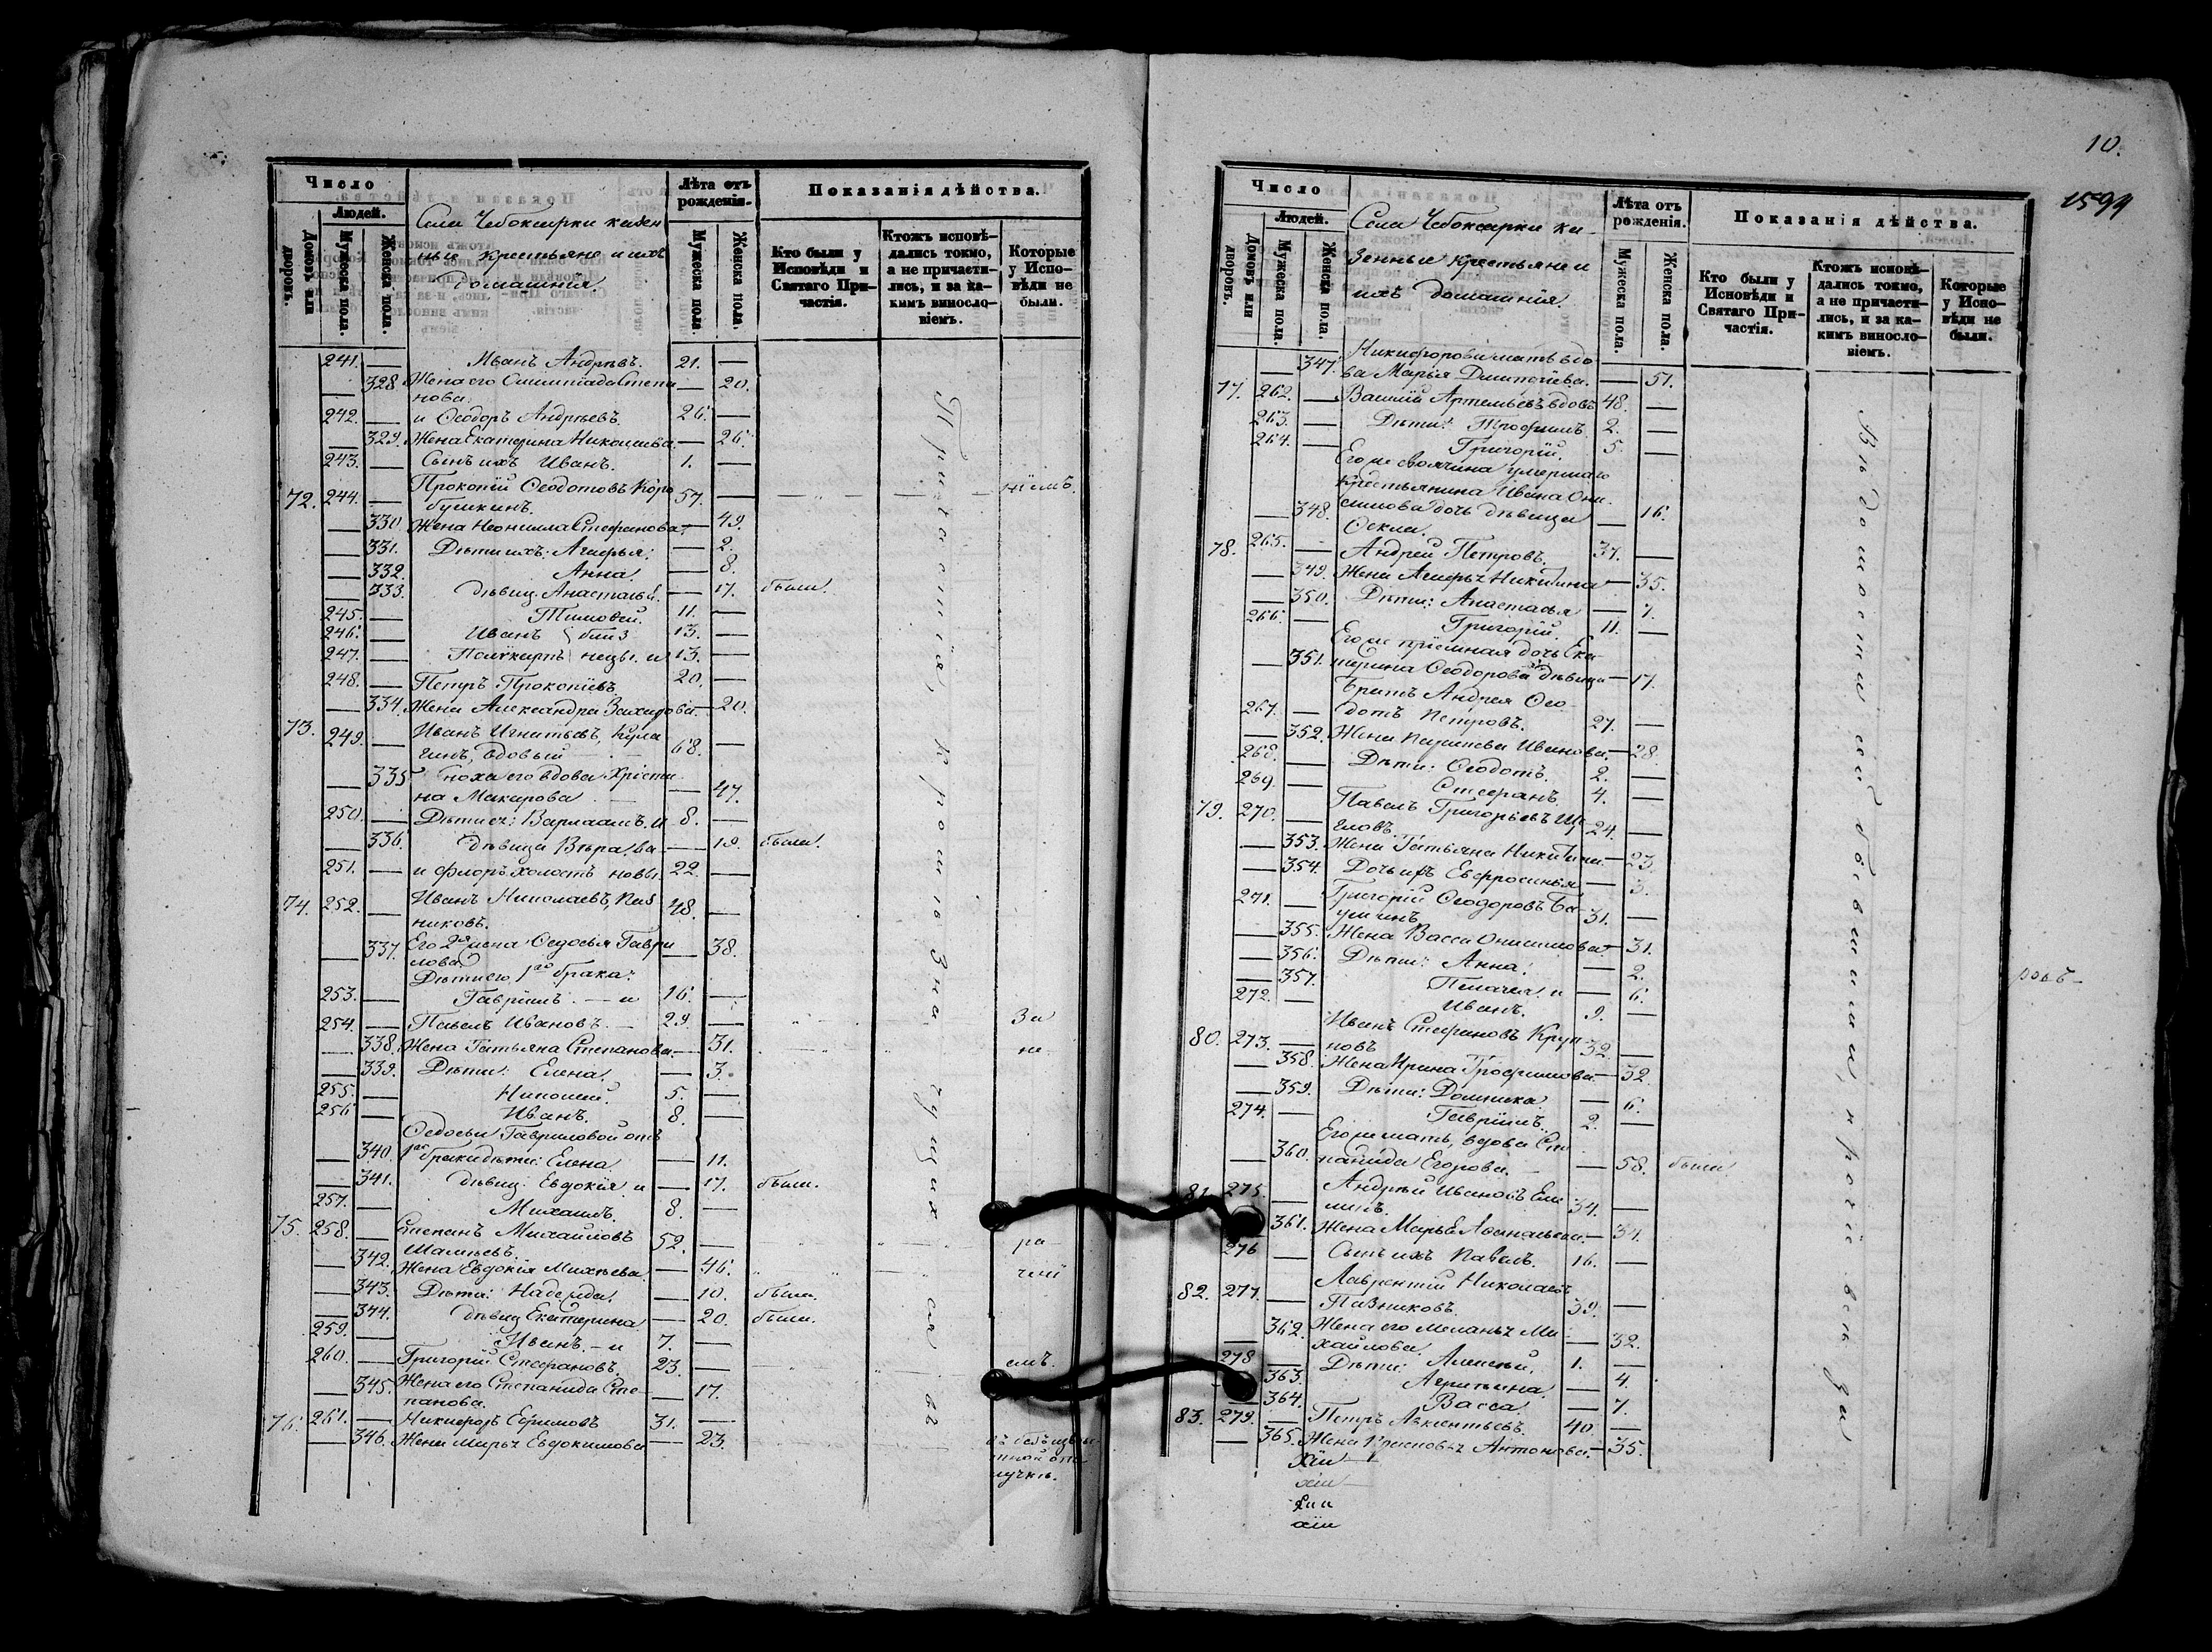 Число
Людей.
Домовъ или дворовъ.
Мужеска пола.
Женска пола.
Села Чебоксарки казен
ные крестьяне и ихъ
домашнія.
Лѣта отъ рожденія.
Мужеска пола.
Женска пола.
Показанія дѣйства.
Кто были у Исповѣди и Святаго При-
частія.
Ктожъ исповѣ-
дались токмо,
а не причасти-
лись, и за ка-
кимъ винослo-
віемъ.
Которые
у Испо-
вѣди не
были.
241. — Иванъ Андреевъ. 21. —
— 328 Жена его Олимпіада Степа — 20.
нова.
242. — и Ѳеодоръ Андреевъ. 26. —
— 329. Жена Екатерина Николаева. — 26.
243. — Сынъ ихъ Иванъ. 1. —
72. 244. — Прокопій Ѳеодотовъ Коро 57. —
бушкинъ.
— 330. Жена Неонилла Стефанова. — 49.
— 331. Дѣти ихъ: Агафья: — 2.
— 332. Анна. — 8.
— 333. дѣвиц. Анастасья. — 17. были.
245. — Тимофей. 11. —
246. — Иванъ близ 13. —
247. — Поликарпъ нецы. и 13. —
248. — Петръ Прокопіевъ 20. —
— 334. Жена Александра Захарова. — 20.
73. 249. — Иванъ Игнатьевъ, Кула 68. —
гинъ, вдовый
— 335 Сноха его вдова Христи
на Макарова — 47.
250. — Дѣти ея: Варлаамъ. и 8. —
— 336. дѣвица Вѣра. — 19. были.
251. — и Флоръ холостъ 22. —
74. 252. — Иванъ Николаевъ, Паз 48. —
никовъ.
— 337. Его 2я жена Ѳедосья Гаври — 38.
лова
Дѣти его 1го брака:
253. — Гавріилъ. — и 16. —
254. — Павелъ Ивановъ. — 29. — За
— 338. Жена Татьяна Степанова. — 31. не
— 339. Дѣти: Елена. — 3.
255. — Николай. 5. —
256 — Иванъ. 8. —
Ѳедосьи Гавриловой отъ
— 340. 1го брака дѣти: Елена — 11.
— 341. дѣвиц. Евдокія и — 17. были.
257. — Михаилъ. 8. —
75. 258. — Степанъ Михайловъ 52. — ра
— 342. Жена Евдокія Михѣева. — 46. чені
— 343. Дѣти: Надежда. — 10. была.
— 344. дѣвиц Екатерина — 20. были.
259. — Иванъ. — и 7. —
260. — Григорій Стефановъ. 23. — емъ.
— 345. Жена его Степанида Сте — 17.
панова.
76. 261. — Никифоръ Ефимовъ 31. —
— 346. Жена Марья Евдокимова — 23.
10.
1594
Число
Людей.
Домовъ или дворовъ.
Мужеска пола.
Женска пола.
Села Чебоксарки ка
зенные крестьяне и
ихъ домашнія
Лѣта отъ рожденія.
Мужеска пола.
Женска пола.
Показанія дѣйства.
Кто были у
Исповѣди и
Святаго При-
частія.
Ктожъ исповѣ-
дались токмо,
а не причасти-
лись, и за ка-
кимъ винослo-
віемъ.
Которые
у Испо-
вѣди не
были.
— 347. Никифорова мать вдо
ва Марья Дмитріева. — 51.
77. 262. — Василій Артемьевъ вдовъ 48. —
263. — Дѣти: Трофимъ. 2. —
264. — Григорій. 5 —
Его же своячина умершаго
крестьянина Ивана Они
— 348. симова дочь дѣвица — 16.
Ѳекла.
78. 265. — Андрей Петровъ. 37. —
— 349. Жена Агафья Никитина — 35.
— 350. Дѣти: Анастасья — 7.
266. — Григорій. 11. —
Его же пріемная дочь Ека
— 351. терина Ѳеодорова дѣвица — 17.
Братъ Андрея Ѳео
267. — дотъ Петровъ. 27. —
— 352. Жена Параскева Иванова. — 28.
268. — Дѣти: Ѳеодотъ. 2. —
269. — Стефанъ. 4. —
79. 270. — Павелъ Григорьевъ Ще 24. —
гловъ.
— 353. Жена Татьяна Никитина. — 23.
— 354. Дочь ихъ Евфросинья — 3.
271. — Григорій Ѳеодоровъ 31. —
— 355. Жена Васса Онисимова — 31.
— 356. Дѣти: Анна. — 2.
— 357. Пелагея. и — 6.
272. — Иванъ. 9. —
80. 273. — Иванъ Стефановъ Круп 32. —
новъ
— 358. Жена Ирина Трофимова — 32.
— 359. Дѣти: Домника. — 6.
274. — Гавріилъ. 2. —
Его же мать, вдова Сте
— 360. панида Егорова. — 58. была
81. 275. — Андрей Ивановъ 34. —
— 361. Жена Марья Аѳанасьева. — 34.
276 — Сынъ ихъ Павелъ. 16. —
82. 277. — Лаврентій Николаевъ
Пазниковъ. 39. —
— 362. Жена его Меланья Ми — 32.
хайлова.
278 — Дѣти: Алексѣй. 1. —
— 363. Агрипина. — 4.
— 364. Васса. — 7.
83. 279. — Петръ Авксентьевъ. 40. —
— 365. Жена Антонова. — 35.